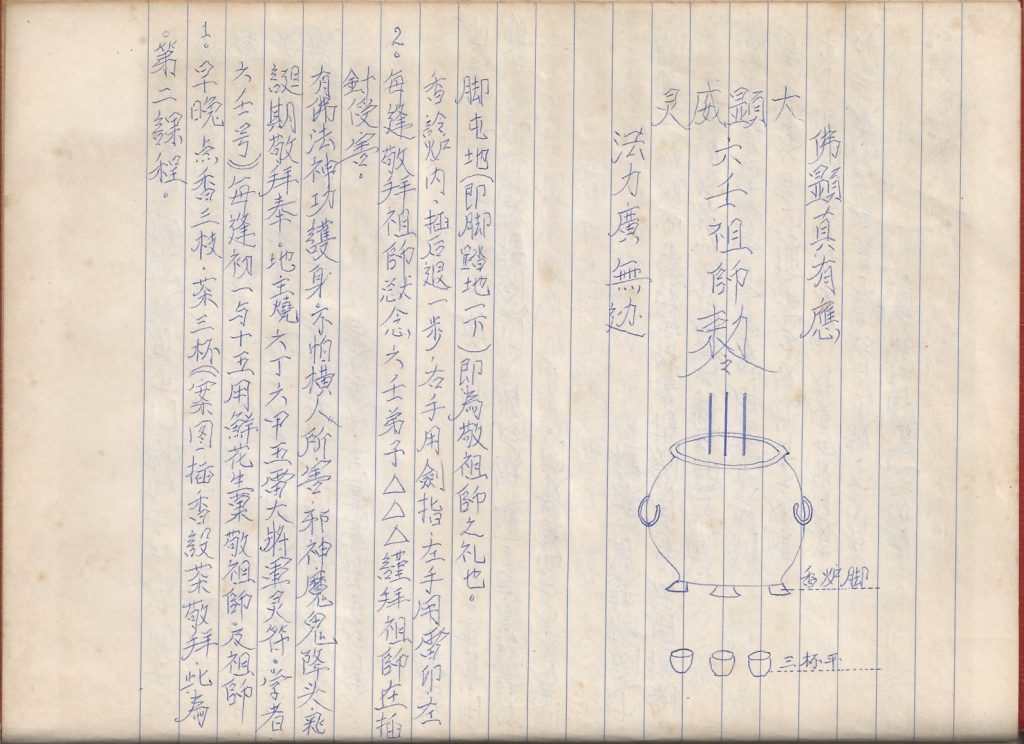 。第二課程。
1。早晚点香三枝、茶三杯(案图一插香設茶敬拜、此為
六壬号)每逢初一与十五用鮮花生菓敬祖師及祖師
誕期敬拜奉、地主燒六丁六甲五雷大將軍灵符。学者
有佛法神功護身、不怕橫人所害、邪神魔鬼降头、飛
針受害。
2。每逢敬拜祖師默念六壬弟子△△△謹拜祖師在插
香於炉内、插后退一步、右手用劍指左手用雷印左
脚屯地(即脚踏地一下)即為敬祖師之礼也。
大顯威灵
佛顯真有應
六壬祖師勅令
法力廣無边
香炉脚
三杯平